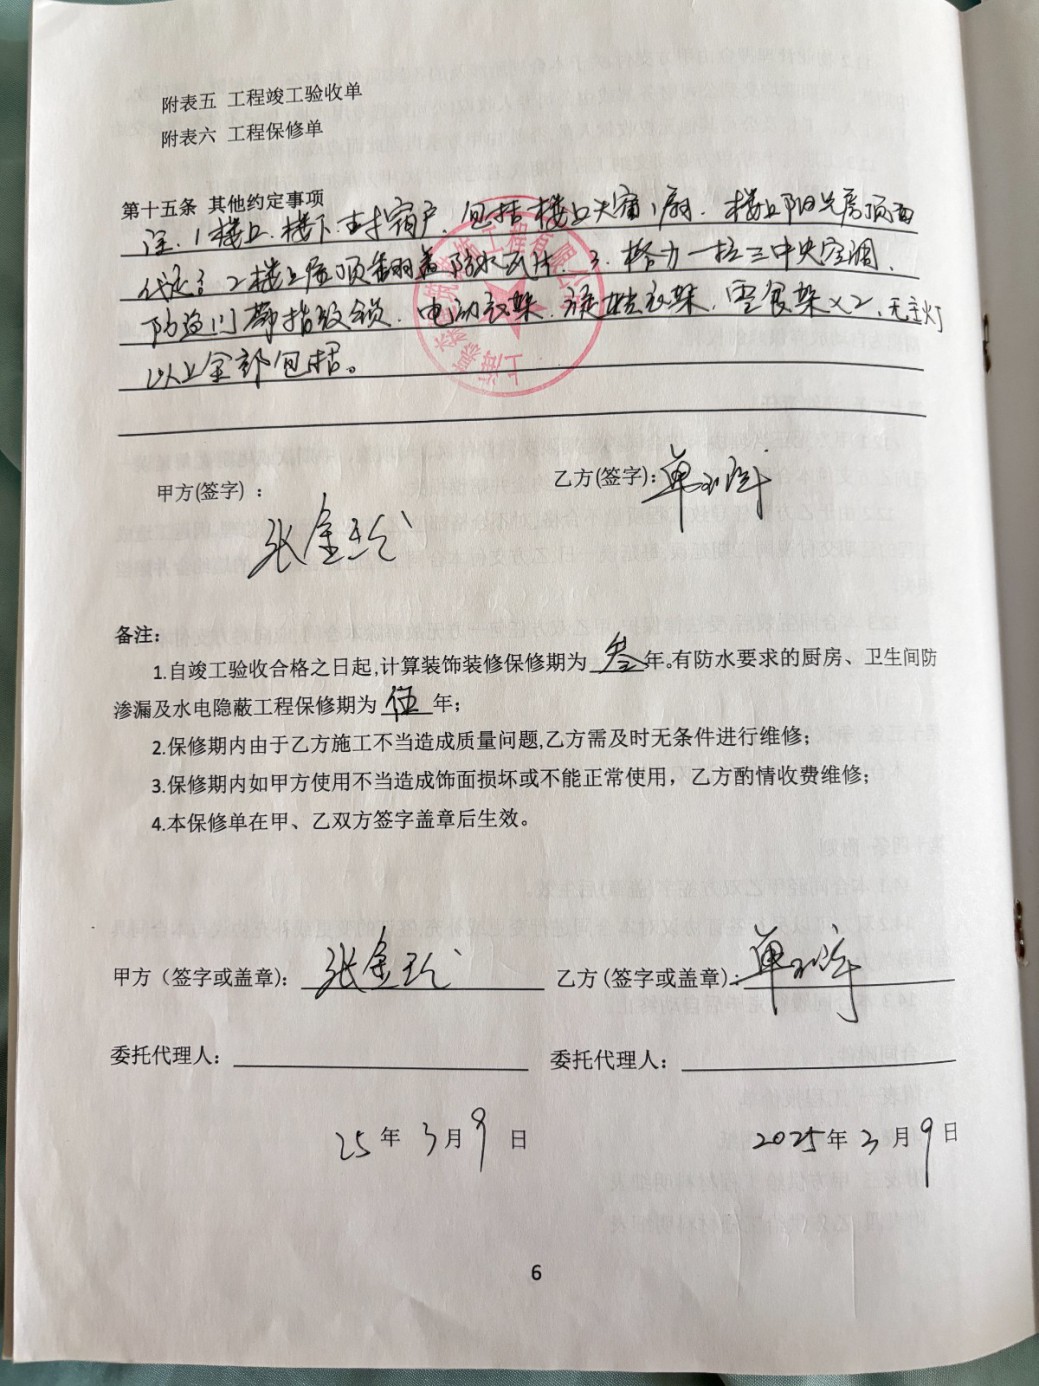 附表五 工程竣工验收单
附表六 工程保修单
第十五条 其他约定事项
注.1楼上.楼下.封窗户.包括楼上天窗1扇.楼上阳光房顶面
2楼上屋顶翻盖防水瓦片.3.格力一拖三中央空调.
防盗门带指纹锁.电动衣架.衣架.零食架×2.无主灯
以上全部包括。
甲方(签字) :
乙方(签字):单
张金玲
备注:
1.自竣工验收合格之日起,计算装饰装修保修期为 叁 年。有防水要求的厨房、卫生间防
渗漏及水电隐蔽工程保修期为 伍 年；
2.保修期内由于乙方施工不当造成质量问题,乙方需及时无条件进行维修；
3.保修期内如甲方使用不当造成饰面损坏或不能正常使用，乙方酌情收费维修；
4.本保修单在甲、乙双方签字盖章后生效。
甲方（签字或盖章）: 张金玲
乙方 (签字或盖章): 单
委托代理人:
委托代理人:
25 年 3 月 9 日
2025 年 3 月 9 日
6